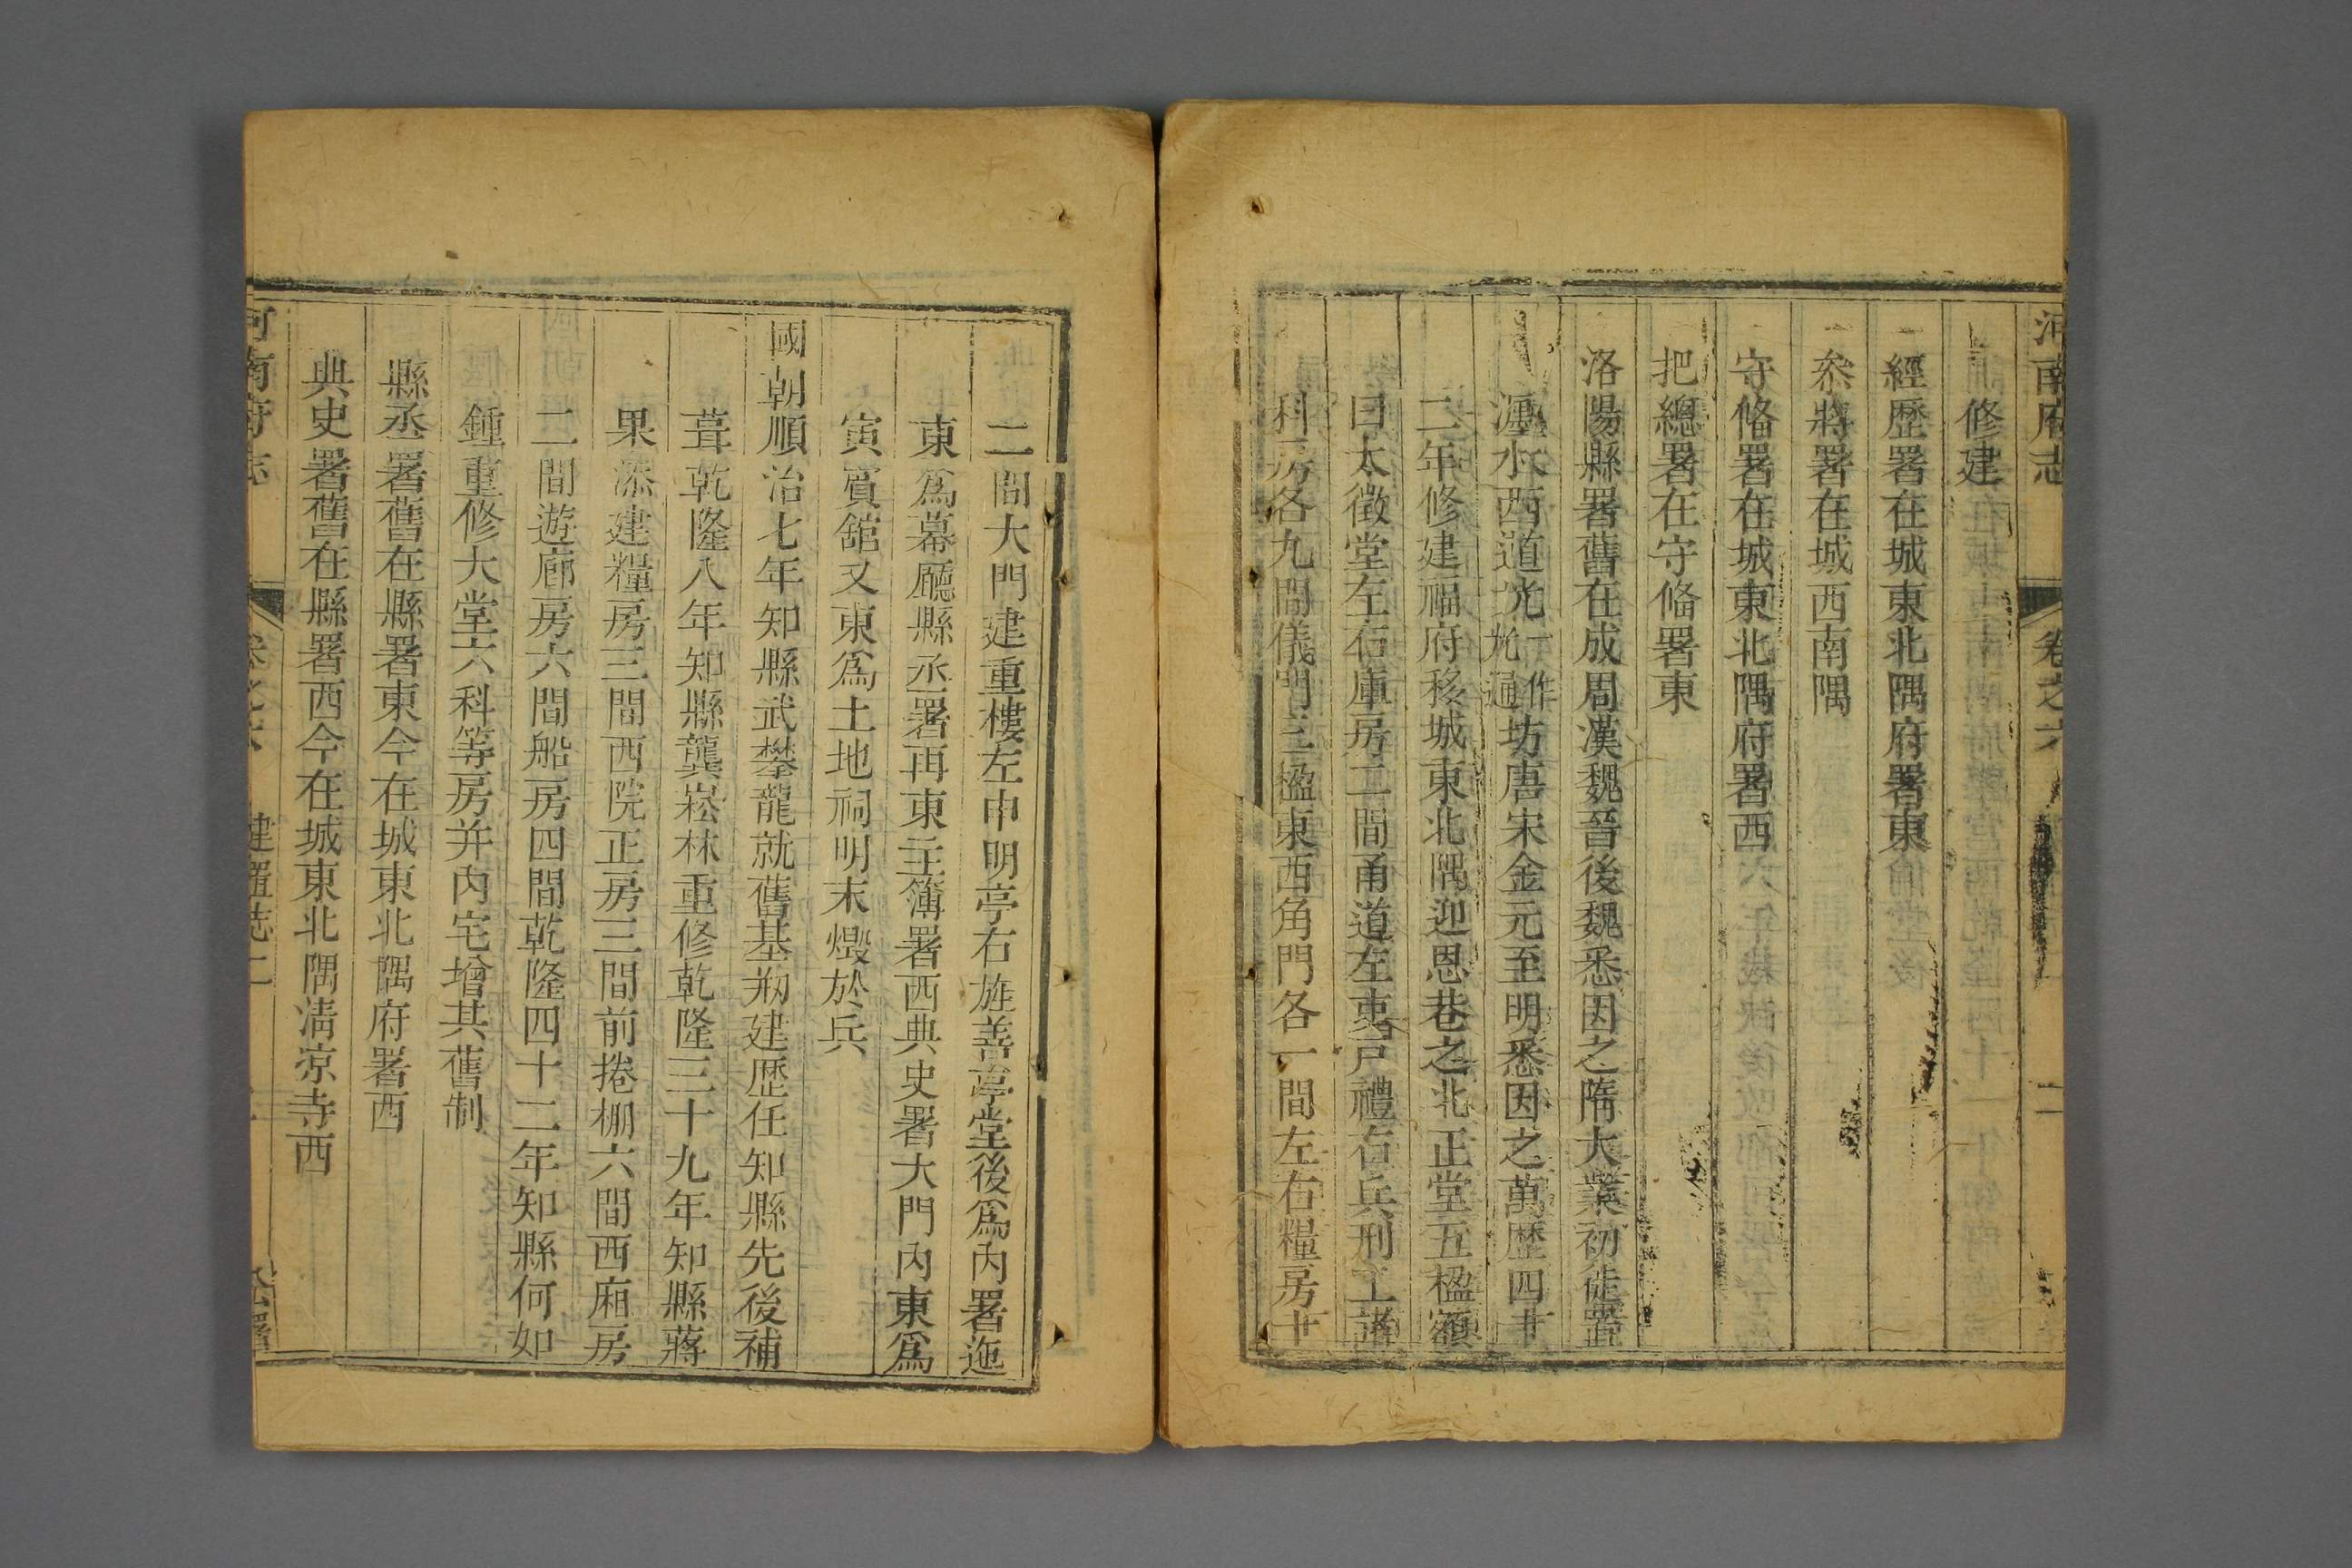 河南府志 卷之六 二
修建
經歷署在城東北隅府署東
叅將署在城西南隅
守俻署在城東北隅府署西
把總署在守俻署東
洛陽縣署舊在成周漢魏晉後魏悉因之隋大業初徙置
瀍水西道光一作坊唐宋金元至明悉因之萬歴四十
二年修建福府移城東北隅迎恩巷之北正堂五楹額
曰太徵堂左右庫房二間甬道左吏戸禮右兵刑工諸
科房各九間儀門三楹東西角門各一間左右糧房十
二間大門建重樓左申明亭右旌善亭堂後爲內署迤
東爲幕廳縣丞署再東主簿署西典史署大門內東爲
寅賓舘又東爲土地祠明末燬於兵
國朝順治七年知縣武攀龍就舊基剏建歴任知縣先後補
葺乾隆八年知縣龔崧林重修乾隆三十九年知縣蔣
果添建糧房三間西院正房三間前捲棚六間西廂房
二間遊廊房六間船房四間乾隆四十二年知縣何如
鍾重修大堂六科等房并內宅增其舊制
縣丞署舊在縣署東今在城東北隅府署西
典史署舊在縣署西今在城東北隅清凉寺西
河南府志 卷之六 建置志二 公署